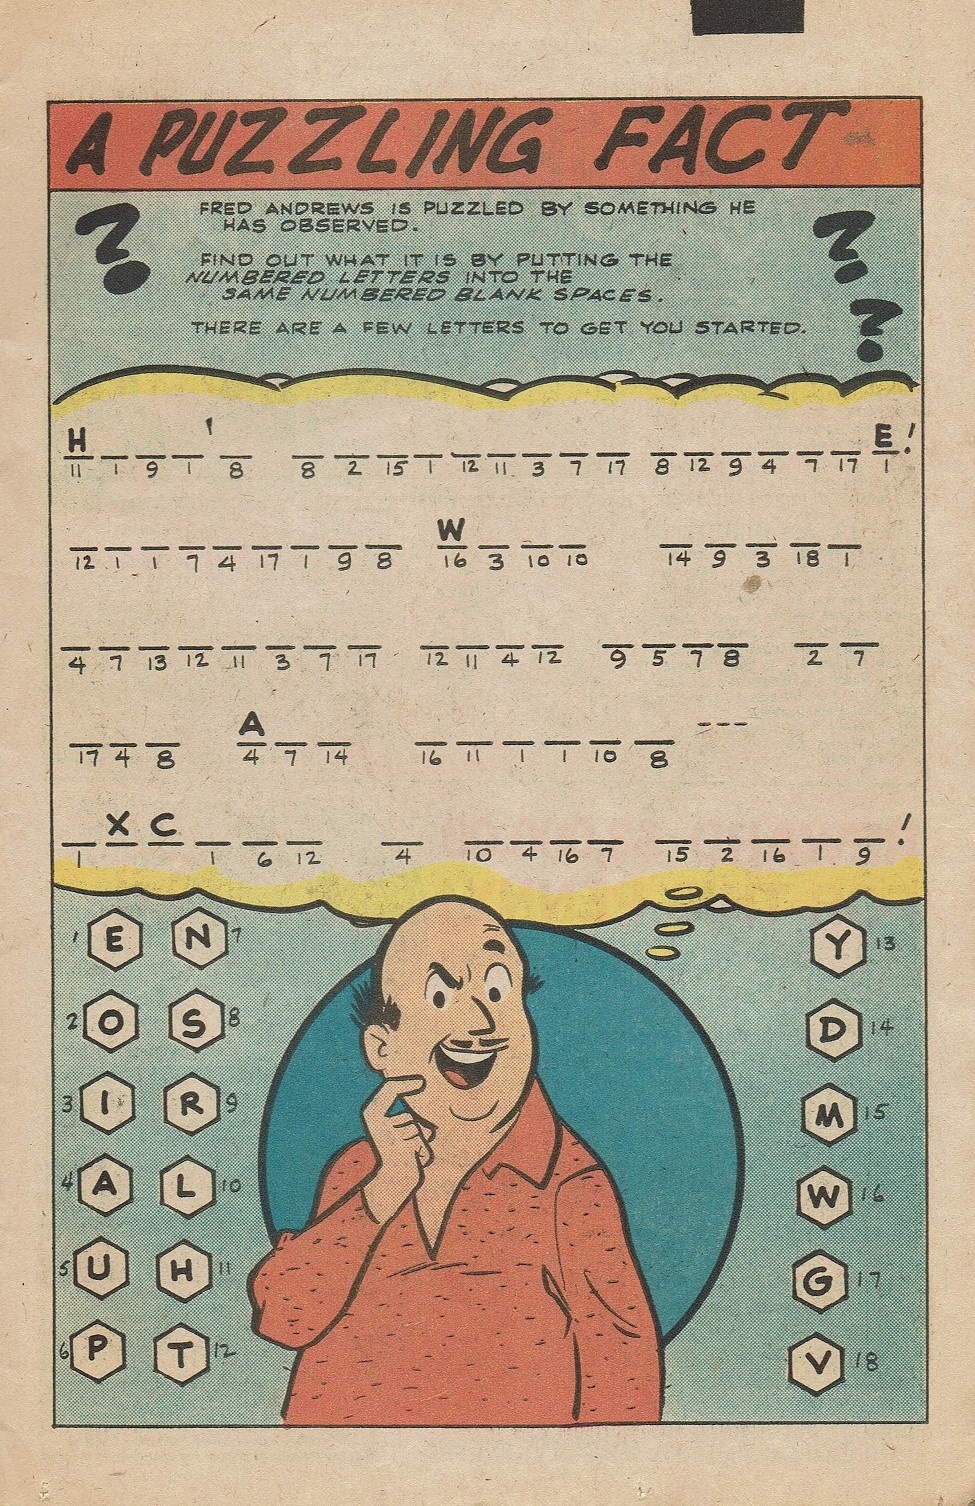 A PUZZLING FACT
?
?
?
FRED ANDREWS IS PUZZLED BY SOMETHING HE
HAS OBSERVED.
FIND OUT WHAT IT IS BY PUTTING THE
NUMBERED LETTERS INTO THE
SAME NUMBERED BLANK SPACES.
THERE ARE A FEW LETTERS TO GET YOU STARTED.
H ' E!
11 1 9 1 8 8 2 15 1 12 11 3 7 17 8 12 9 4 7 17 1
W
12 1 1 7 4 17 1 9 8 16 3 10 10 14 9 3 18 1
4 7 13 12 11 3 7 17 12 11 4 12 9 5 7 8 2 7
A ---
17 4 8 4 7 14 16 11 1 1 10 8
X C !
1 1 6 12 4 10 4 16 7 15 2 16 1 9
1 E N 7 Y 13
2 O S 8 D 14
3 I R 9 M 15
4 A L 10 W 16
5 U H 11 G 17
6 P T 12 V 18